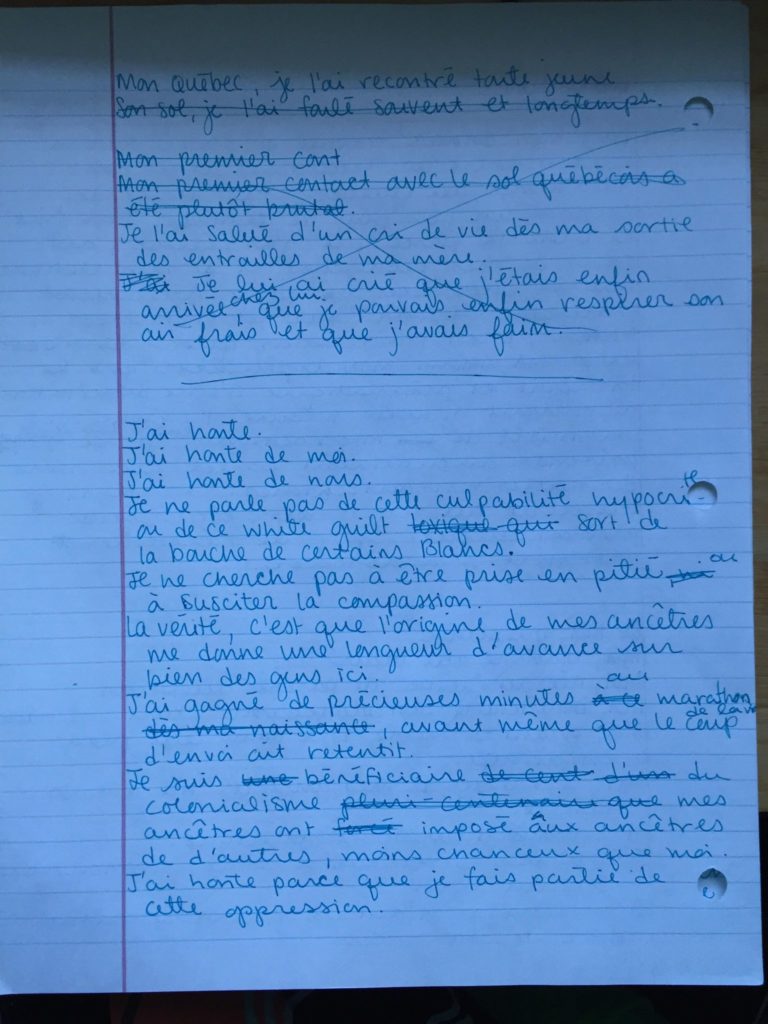 Mon Québec, je l'ai recontré toute jeune
Son sol, je l'ai foulé souvent et longtemps.
Mon premier cont
Mon premier contact avec le sol québécois a
été plutôt brutal.
Je l'ai salué d'un cri de vie dès ma sortie
des entrailles de ma mère.
J'ai Je lui ai crié que j'étais enfin
arrivée chez lui, que je pouvais enfin respirer son
air frais et que j'avais faim.
J'ai honte.
J'ai honte de moi.
J'ai honte de nous.
Je ne parle pas de cette culpabilité hypocrite
ou de ce white guilt toxique qui sort de
la bouche de certains Blancs.
Je ne cherche pas à être prise en pitié ni ou
à susciter la compassion.
La vérité, c'est que l'origine de mes ancêtres
me donne une longueur d'avance sur
bien des gens ici.
J'ai gagné de précieuses minutes à ce au marathon
de la vie
dès ma naissance, avant même que le coup
d'envoi ait retentit.
Je suis une bénéficiaire de cent d'un du
colonialisme pluri-centenaire que mes
ancêtres ont forcé imposé aux ancêtres
de d'autres, moins chanceux que moi.
J'ai honte parce que je fais partie de
cette oppression.